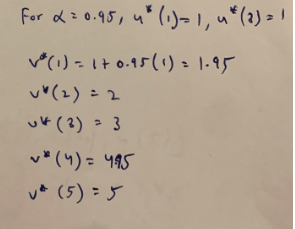 For α = 0.95, u*(1)=1, u*(2)=1
v*(1) = 1+0.95(1) = 1.95
v*(2) = 2
v*(3) = 3
v*(4) = 4.95
v*(5) = 5